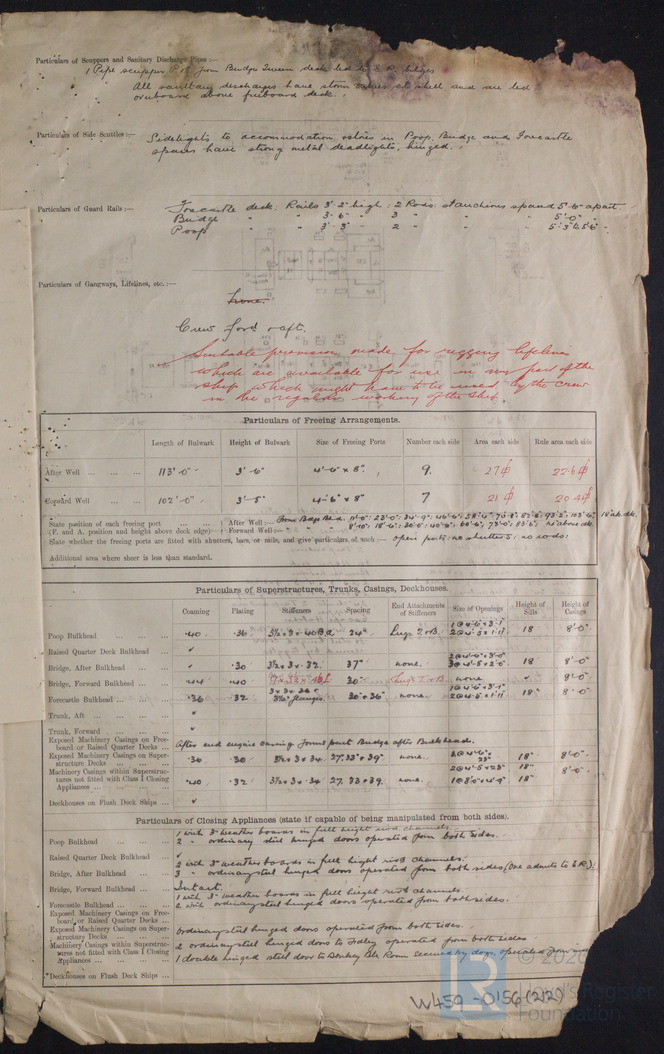 Particulars of Scuppers and Sanitary Discharge Pipes :—
1 Pipe scupper P & S from Bridge Tween deck led to E.R. bilges
All sanitary discharges have storm valves at shell and are led
overboard above freeboard deck.
Particulars of Side Scuttles :— Sidelights to accommodation, stores in Poop, Bridge and Forecastle
spaces have strong metal deadlights, hinged.
Particulars of Guard Rails :— Forecastle deck: Rails 3'-2" high: 2 Rods: stanchions spaced 5'-6" apart
Bridge " " 3'-6" " 3 " " " 5'-0" "
Poop " " 3'-3" " 2 " " " 5'-3" to 5'-6" "
Particulars of Gangways, Lifelines, etc. :—
None.
Crew ford & aft.
Suitable provision made for rigging lifelines
which are available for use in any part of the
ship which might have to be used by the crew
in the regular working of the ship.
Particulars of Freeing Arrangements.
Length of Bulwark Height of Bulwark Size of Freeing Ports Number each side Area each side Rule area each side
After Well ... ... ... 113'-0" 3'-6" 4'-6" x 8" 9. 27 22.6
Forward Well ... ... 102'-0" 3'-5" 4'-6" x 8" 7 21 20.4
State position of each freeing port ... ... ... After Well :— From Bdge Bhd.
(F. and A. position and height above deck edge) Forward Well :—
State whether the freeing ports are fitted with shutters, bars, or rails, and give particulars of such :— open ports: no shutters: no rods:
Additional area where sheer is less than standard.
Particulars of Superstructures, Trunks, Casings, Deckhouses.
Coaming Plating Stiffeners Spacing End Attachments of Stiffeners Size of Openings Height of Sills Height of Casings
Poop Bulkhead ... ... ... .40 .36 3½ x 3 x .40 B.A. 24" Lugs T & B. 1 @ 4'-6" x 3'-1" 2 @ 4'-5" x 1'-11" 18" 8'-0"
Raised Quarter Deck Bulkhead ...
Bridge, After Bulkhead ... ... .30 3½ x 3 x .32 37" none. 18 8'-0"
Bridge, Forward Bulkhead ... ... .44 .40 30" Lugs T & B. none 8'-0"
Forecastle Bulkhead ... ... ... .36 .32 30" & 36" none. 18" 8'-0"
Trunk, Aft ... ... ... ...
Trunk, Forward ... ... ...
Exposed Machinery Casings on Free-
board or Raised Quarter Decks ... After end engine casing forms part Bridge after Bulkhead.
Exposed Machinery Casings on Super-
structure Decks ... ... ... .36 .30 3½ x 3 x .34 27, 33" & 39" none. 18" 8'-0"
Machinery Casings within Superstruc-
tures not fitted with Class 1 Closing
Appliances ... ... ... ... .40 .32 3½ x 3 x .34 27, 33 & 39. none. 18" 8'-0"
Deckhouses on Flush Deck Ships ...
Particulars of Closing Appliances (state if capable of being manipulated from both sides).
Poop Bulkhead ... ... ... 1 with 3" weather boards in full height rivd channels.
2 " ordinary steel hinged doors operated from both sides.
Raised Quarter Deck Bulkhead ...
Bridge, After Bulkhead ... ... 2 with 3" weather boards in full height rivd channels.
3 " ordinary steel hinged doors operated from both sides (One admits to E.R.)
Bridge, Forward Bulkhead ... ... Intact.
Forecastle Bulkhead ... ... ... 1 with 3" weather boards in full height rivd channels.
2 with ordinary steel hinged doors operated from both sides.
Exposed Machinery Casings on Free-
board or Raised Quarter Decks ...
Exposed Machinery Casings on Super-
structure Decks ... ... ... ordinary steel hinged doors operated from both sides.
Machinery Casings within Superstruc-
tures not fitted with Class 1 Closing
Appliances ... ... ... ... 2 ordinary steel hinged doors to Fidley operated from both sides
1 double hinged steel door to Donkey Blr Room secured by dogs, operated from
Deckhouses on Flush Deck Ships ...
W459-0156 (2/2)
© 2020
Lloyd's Register
Foundation
LR